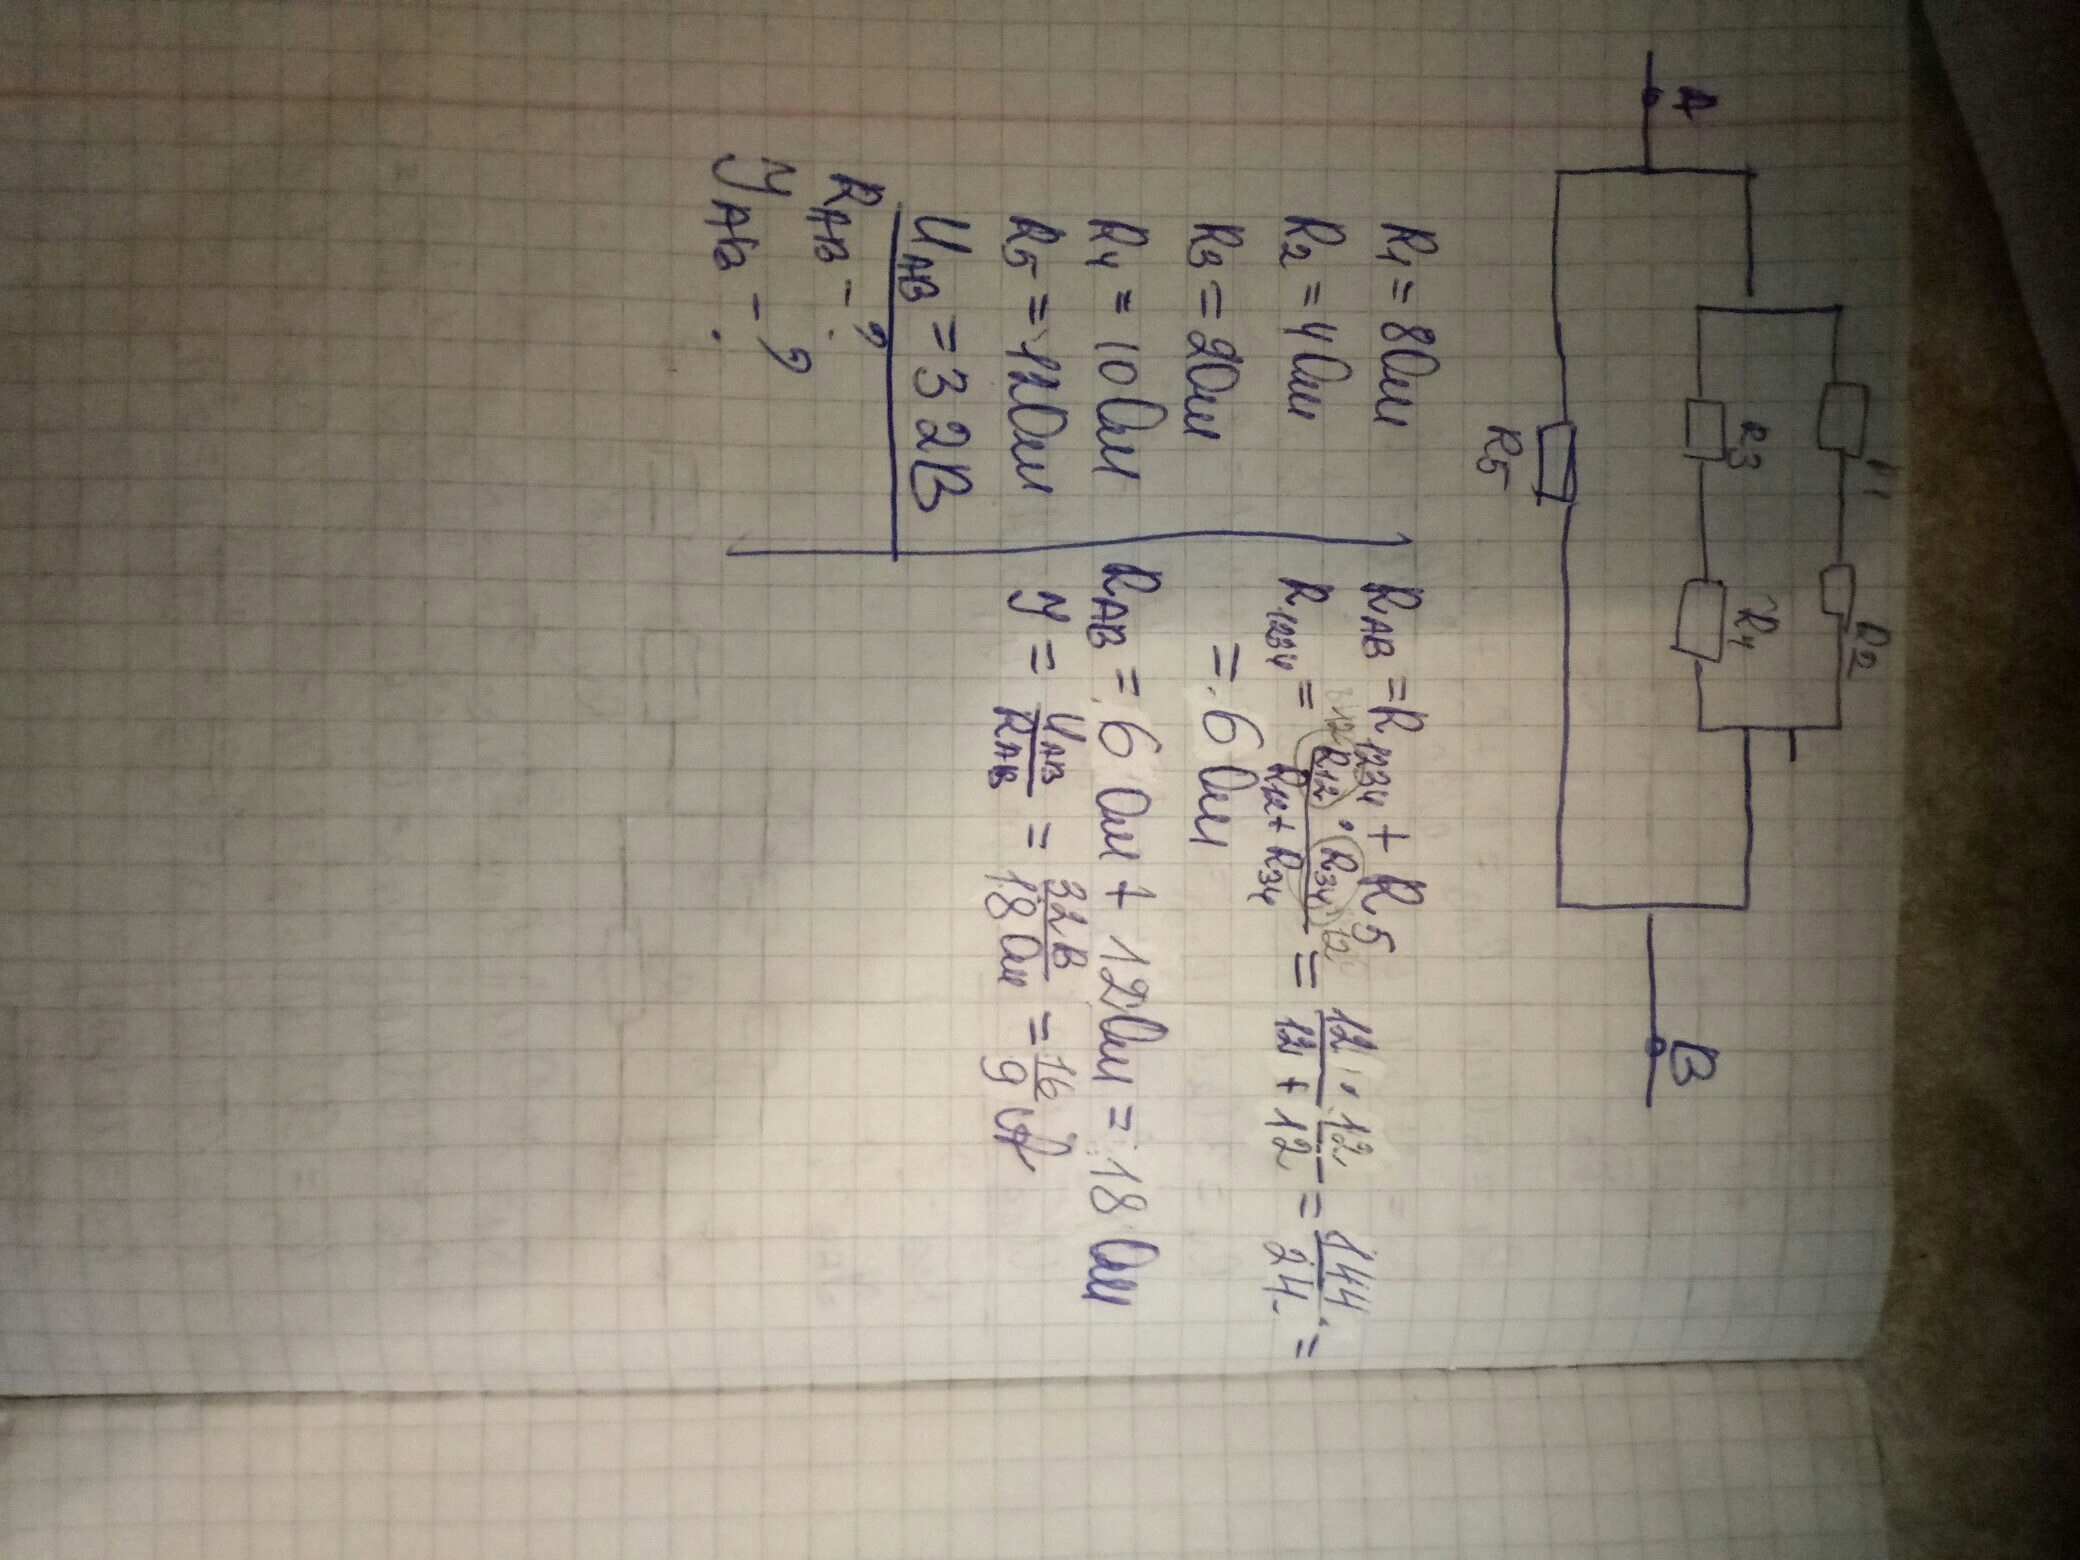 A
R2
R3
R4
B
R5
R1 = 8 Ом
R2 = 4 Ом
R3 = 2 Ом
R4 = 10 Ом
R5 = 12 Ом
UAB = 32 В
RAB - ?
YAB - ?
RAB = R1234 + R5
R1234 = R12 · R34 / R12 + R34 = 12 · 12 / 12 + 12 = 144 / 24 =
= 6 Ом
RAB = 6 Ом + 12 Ом = 18 Ом
Y = UAB / RAB = 32 В / 18 Ом = 16 / 9 A